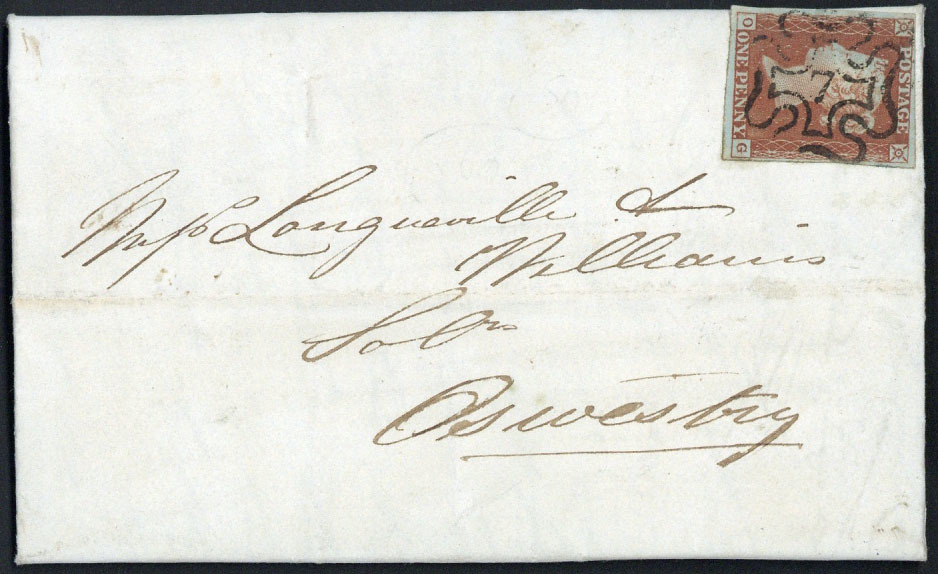 POSTAGE
7
ONE PENNY
O G
Messrs Longueville &
Williams
Solrs
Oswestry